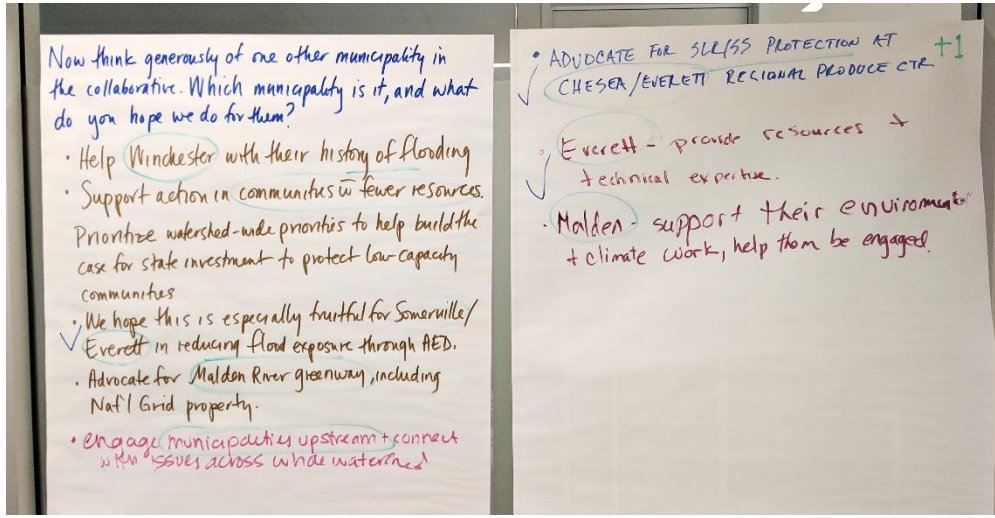 Now think generously of one other municipality in
the collaborative. Which municipality is it, and what
do you hope we do for them?
• Help Winchester with their history of flooding
• Support action in communities w fewer resources.
Prioritize watershed-wide priorities to help build the
case for state investment to protect low-capacity
communities
• We hope this is especially fruitful for Somerville/
Everett in reducing flood exposure through AED.
• Advocate for Malden River greenway, including
Nat'l Grid property.
• engage municipalities upstream + connect
with issues across whole watershed
• ADVOCATE FOR SLR/SS PROTECTION AT +1
CHESEA/EVERETT REGIONAL PRODUCE CTR
• Everett - provide resources +
technical expertise.
• Malden - support their environmental
+ climate work, help them be engaged.